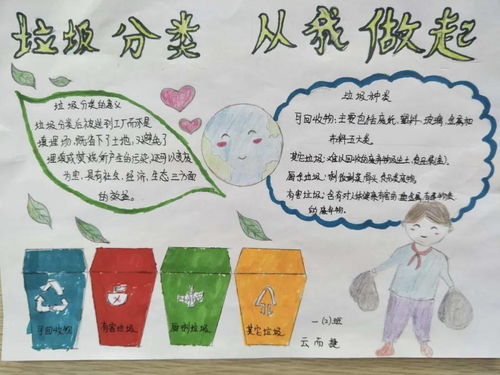 垃圾分类 从我做起
垃圾分类的意义
垃圾分类后被送到工厂而不是
填埋场,既省下了土地,又避免了
填埋或焚烧所产生的污染,还可以变废
为宝,具有社会、经济、生态三方面
的效益。
垃圾种类
可回收物:主要包括废纸、塑料、玻璃、金属和
布料五大类。
其它垃圾:
厨余垃圾:剩菜剩饭、骨头、
有害垃圾:含有对人体健康有害的重金属、有毒的物质
的废弃物。
可回收物
有害垃圾
厨余垃圾
其它垃圾
一(2)班
云而捷